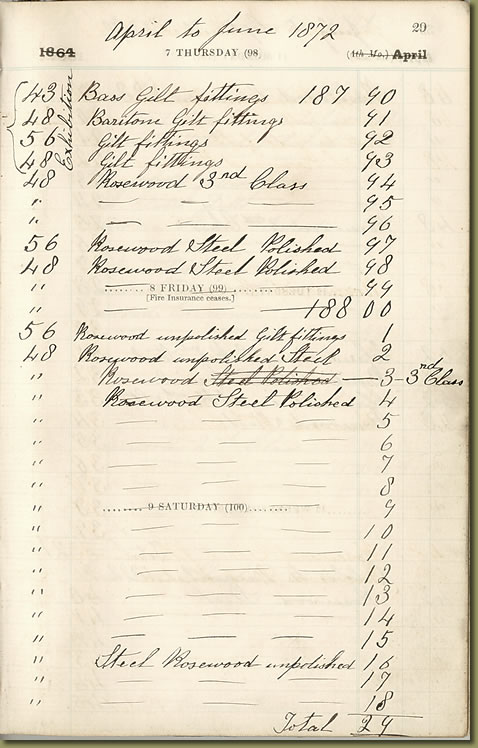 April to June 1872
29
1864 7 THURSDAY (98 (4th Mo.) April
Exhibition
43 Bass Gilt fittings 187 90
48 Baritone Gilt fittings 91
56 Gilt fittings 92
48 Gilt fittings 93
48 Rosewood 3rd Class 94
" — — — 95
" — — — 96
56 Rosewood Steel Polished 97
48 Rosewood Steel Polished 98
" ........ 8 FRIDAY (99) ........ 99
[Fire Insurance ceases.]
" — — 188 00
56 Rosewood unpolished Gilt fittings 1
48 Rosewood unpolished Steel 2
" Rosewood Steel Polished — 3 – 3rd Class
" Rosewood Steel Polished 4
" — — — 5
" — — — 6
" — — — 7
" — — — 8
" ........ 9 SATURDAY (100) ........ 9
" — — — 10
" — — — 11
" — — — 12
" — — — 13
" — — — 14
" — — — 15
" Steel Rosewood unpolished 16
" — — — 17
" — — — 18
Total 29